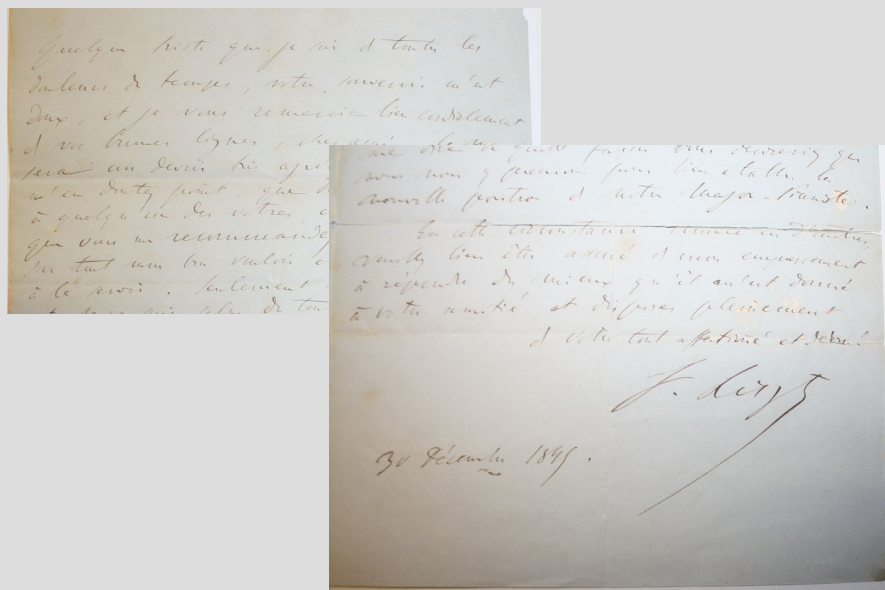 Quelque triste que je sois de toutes les
douleurs du temps, votre souvenir m'est
doux, et je vous remercie bien cordialement
de vos bonnes lignes, cher ami.
sera un devoir très
n'en doutez point, que
à quelqu'un des votres,
que vous me recommandez
sur tout mon bon vouloir
à le servir. Seulement
plus
façon vous
nous nous y prenions pour bien établir la
nouvelle position de notre Major-Pianiste.
En cette circonstance comme en d'autres
veuillez bien être assuré de mon empressement
à répondre du mieux qu'il m'est donné
à votre amitié, et disposez pleinement
de votre tout affectionné et dévoué
F. Liszt
30 Décembre 1849.